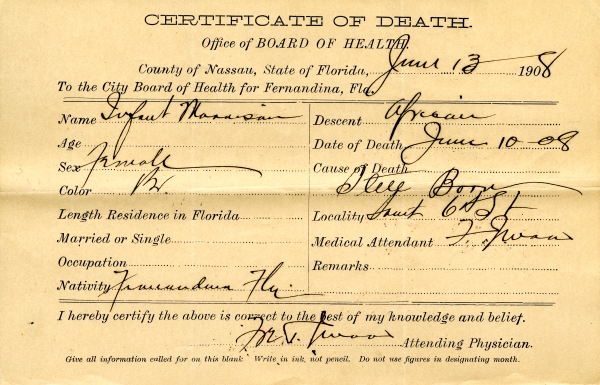 CERTIFICATE OF DEATH.
Office of BOARD OF HEALTH.
County of Nassau, State of Florida, June 13 1908
To the City Board of Health for Fernandina, Fla.
Name Infant Morrison
Age
Sex Female
Color Br.
Length Residence in Florida
Married or Single
Occupation
Nativity Fernandina Fla.
Descent African
Date of Death June 10-08
Cause of Death
Still Born
Locality South 6th St
Medical Attendant
Remarks
I hereby certify the above is correct to the best of my knowledge and belief.
Attending Physician.
Give all information called for on this blank Write in ink, not pencil. Do not use figures in designating month.